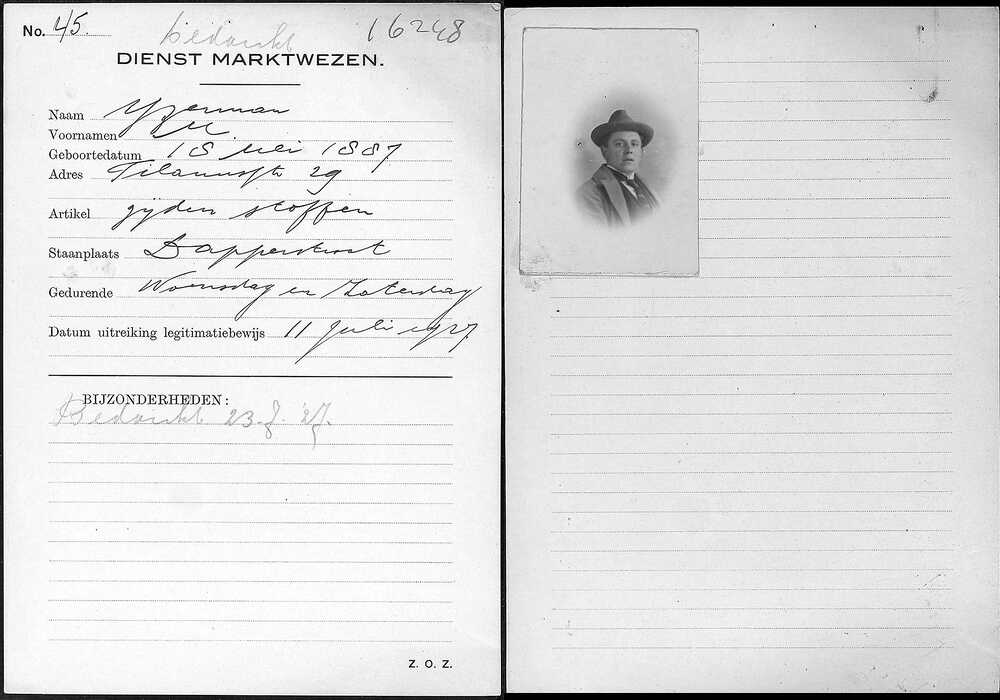 No. 45.
bedankt
16248
DIENST MARKTWEZEN.
Naam Yzerman
Voornamen M
Geboortedatum 18 Mei 1887
Adres 29
Artikel zijden stoffen
Staanplaats Dapperstraat
Gedurende Woensdag en Zaterdag
Datum uitreiking legitimatiebewijs 11 Juli 1927
BIJZONDERHEDEN:
Bedankt 23-8-'27.
Z. O. Z.